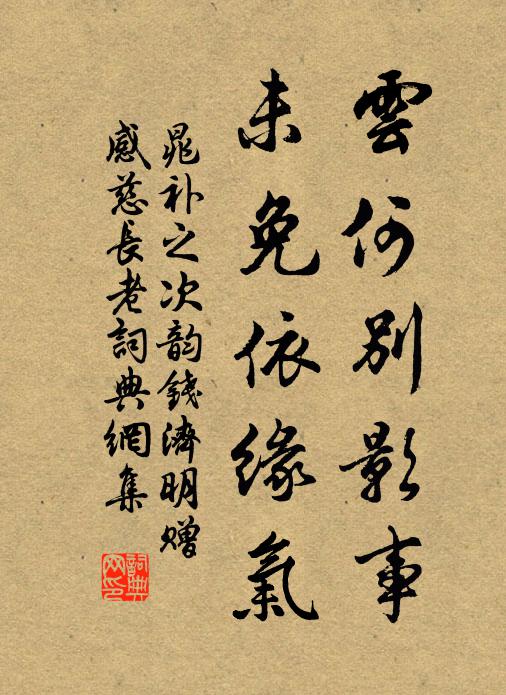 雲何別影事
未免依緣氣
晁补之次韵錢濟明贈
感慈長老詞典網集
詞典
网印